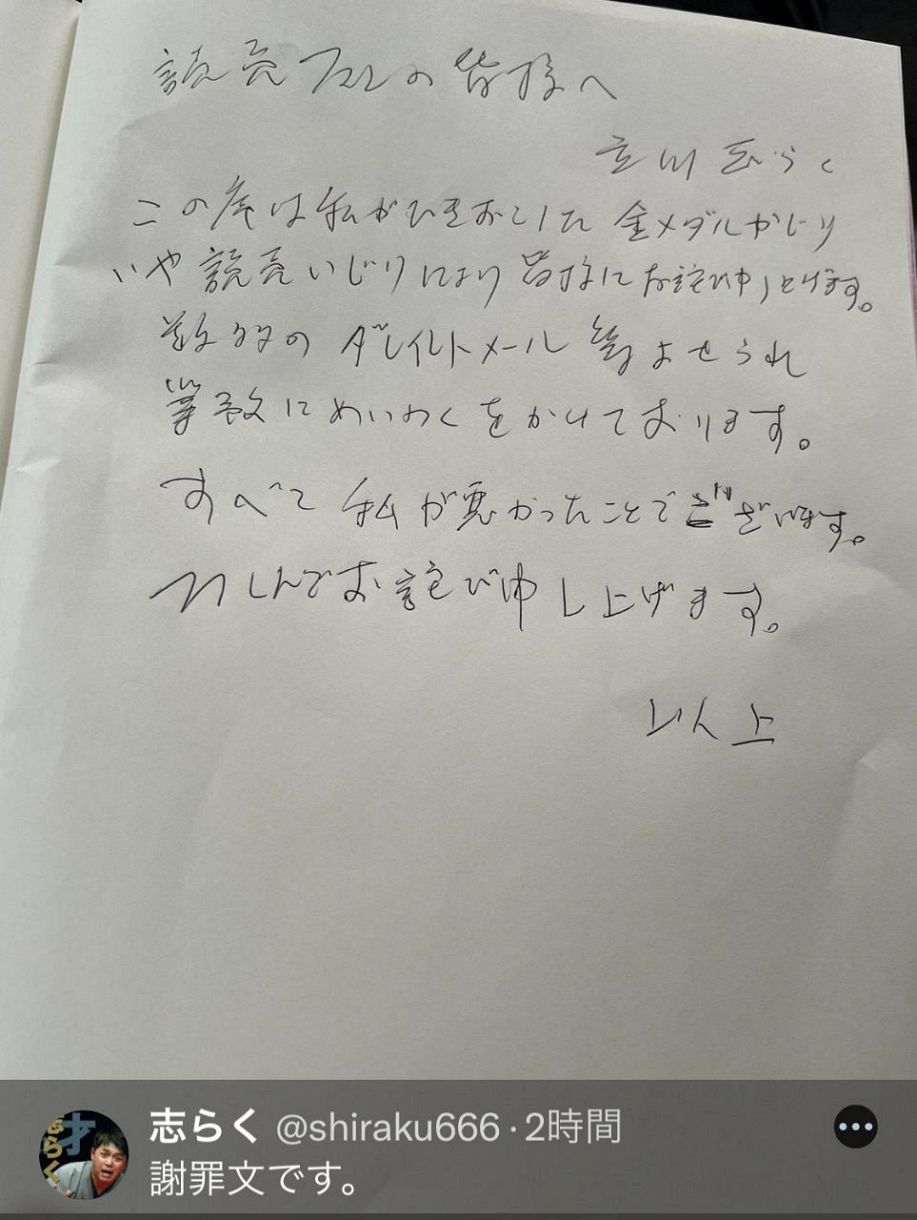 読売の皆様へ
立川志らく
この度は私がひきおこした 金メダルかじり
いや読売いじりにより皆様にお詫び申し上げます。
数多のダイレクトメール等よせられ
にめいわくをかけております。
すべて私が悪かったことでございます。
つつしんでお詫び申し上げます。
以上
志らく @shiraku666·2時間
謝罪文です。